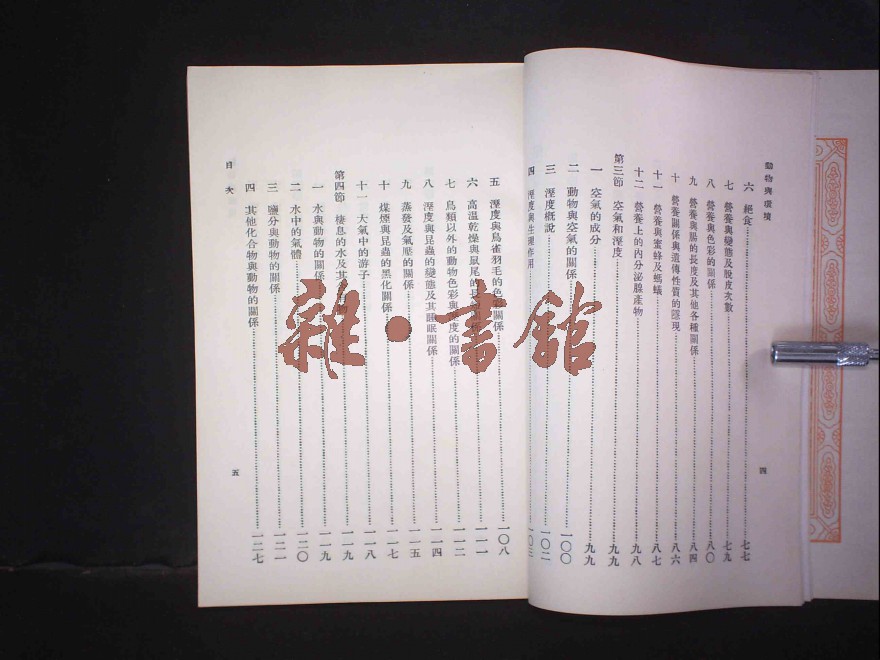 動物與環境
六 絕食 七七
七 營養與變態及脫皮次數 七九
八 營養與色彩的關係 八〇
九 營養與腸的長度及其他各種關係 八四
十 營養關係與遺傳性質的隱現 八六
十一 營養與蜜蜂及螞蟻 八七
十二 營養上的內分泌腺產物 九八
第三節 空氣和溼度 九九
一 空氣的成分 九九
二 動物與空氣的關係 一〇〇
三 溼度概說 一〇二
四 溼度與生理作用 一〇三
四
五 溼度與鳥雀羽毛的色彩關係 一〇八
六 高溫乾燥與鼠尾的長 關係 一一一
七 鳥類以外的動物色彩與溼度的關係 一一二
八 溼度與昆蟲的變態及其睡眠關係 一一四
九 蒸發及氣壓的關係 一一五
十 煤煙與昆蟲的黑化關係 一一七
十一 大氣中的游子 一一八
第四節 棲息的水及其 物 一一九
一 水與動物的關係 一一九
二 水中的氣體 一二〇
三 鹽分與動物的關係 一二一
四 其他化合物與動物的關係 一二七
目次
五
雜·書館